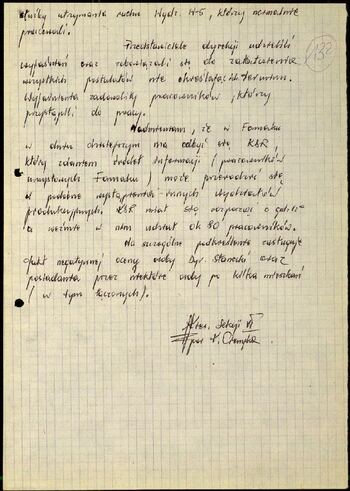 służby utrzymania ruchu Wydz. W-5, którzy normalnie
pracowali.
132
Przedstawiciele dyrekcji udzielili
wyjaśnień oraz zobowiązali się do załatwienia
wszystkich postulatów nie określając terminu.
Wyjaśnienia zadowoliły pracowników, którzy
przystąpili do pracy.
Nadmieniam, że w Famaku
w dniu dzisiejszym ma odbyć się KSR,
który zdaniem źródeł informacji (pracowników
umysłowych Famaku) może przerodzić się
w podobne wystąpienia innych wydziałów
produkcyjnych. KSR miał się rozpocząć o godz.
a weźmie w nim udział ok 90 pracowników.
Na szczególne podkreślenie zasługuje
fakt negatywnej oceny osoby Dyr. oraz
posiadania przez niektóre osoby po kilka mieszkań
(w tym łączonych).
Kier. Sekcji VI
por.